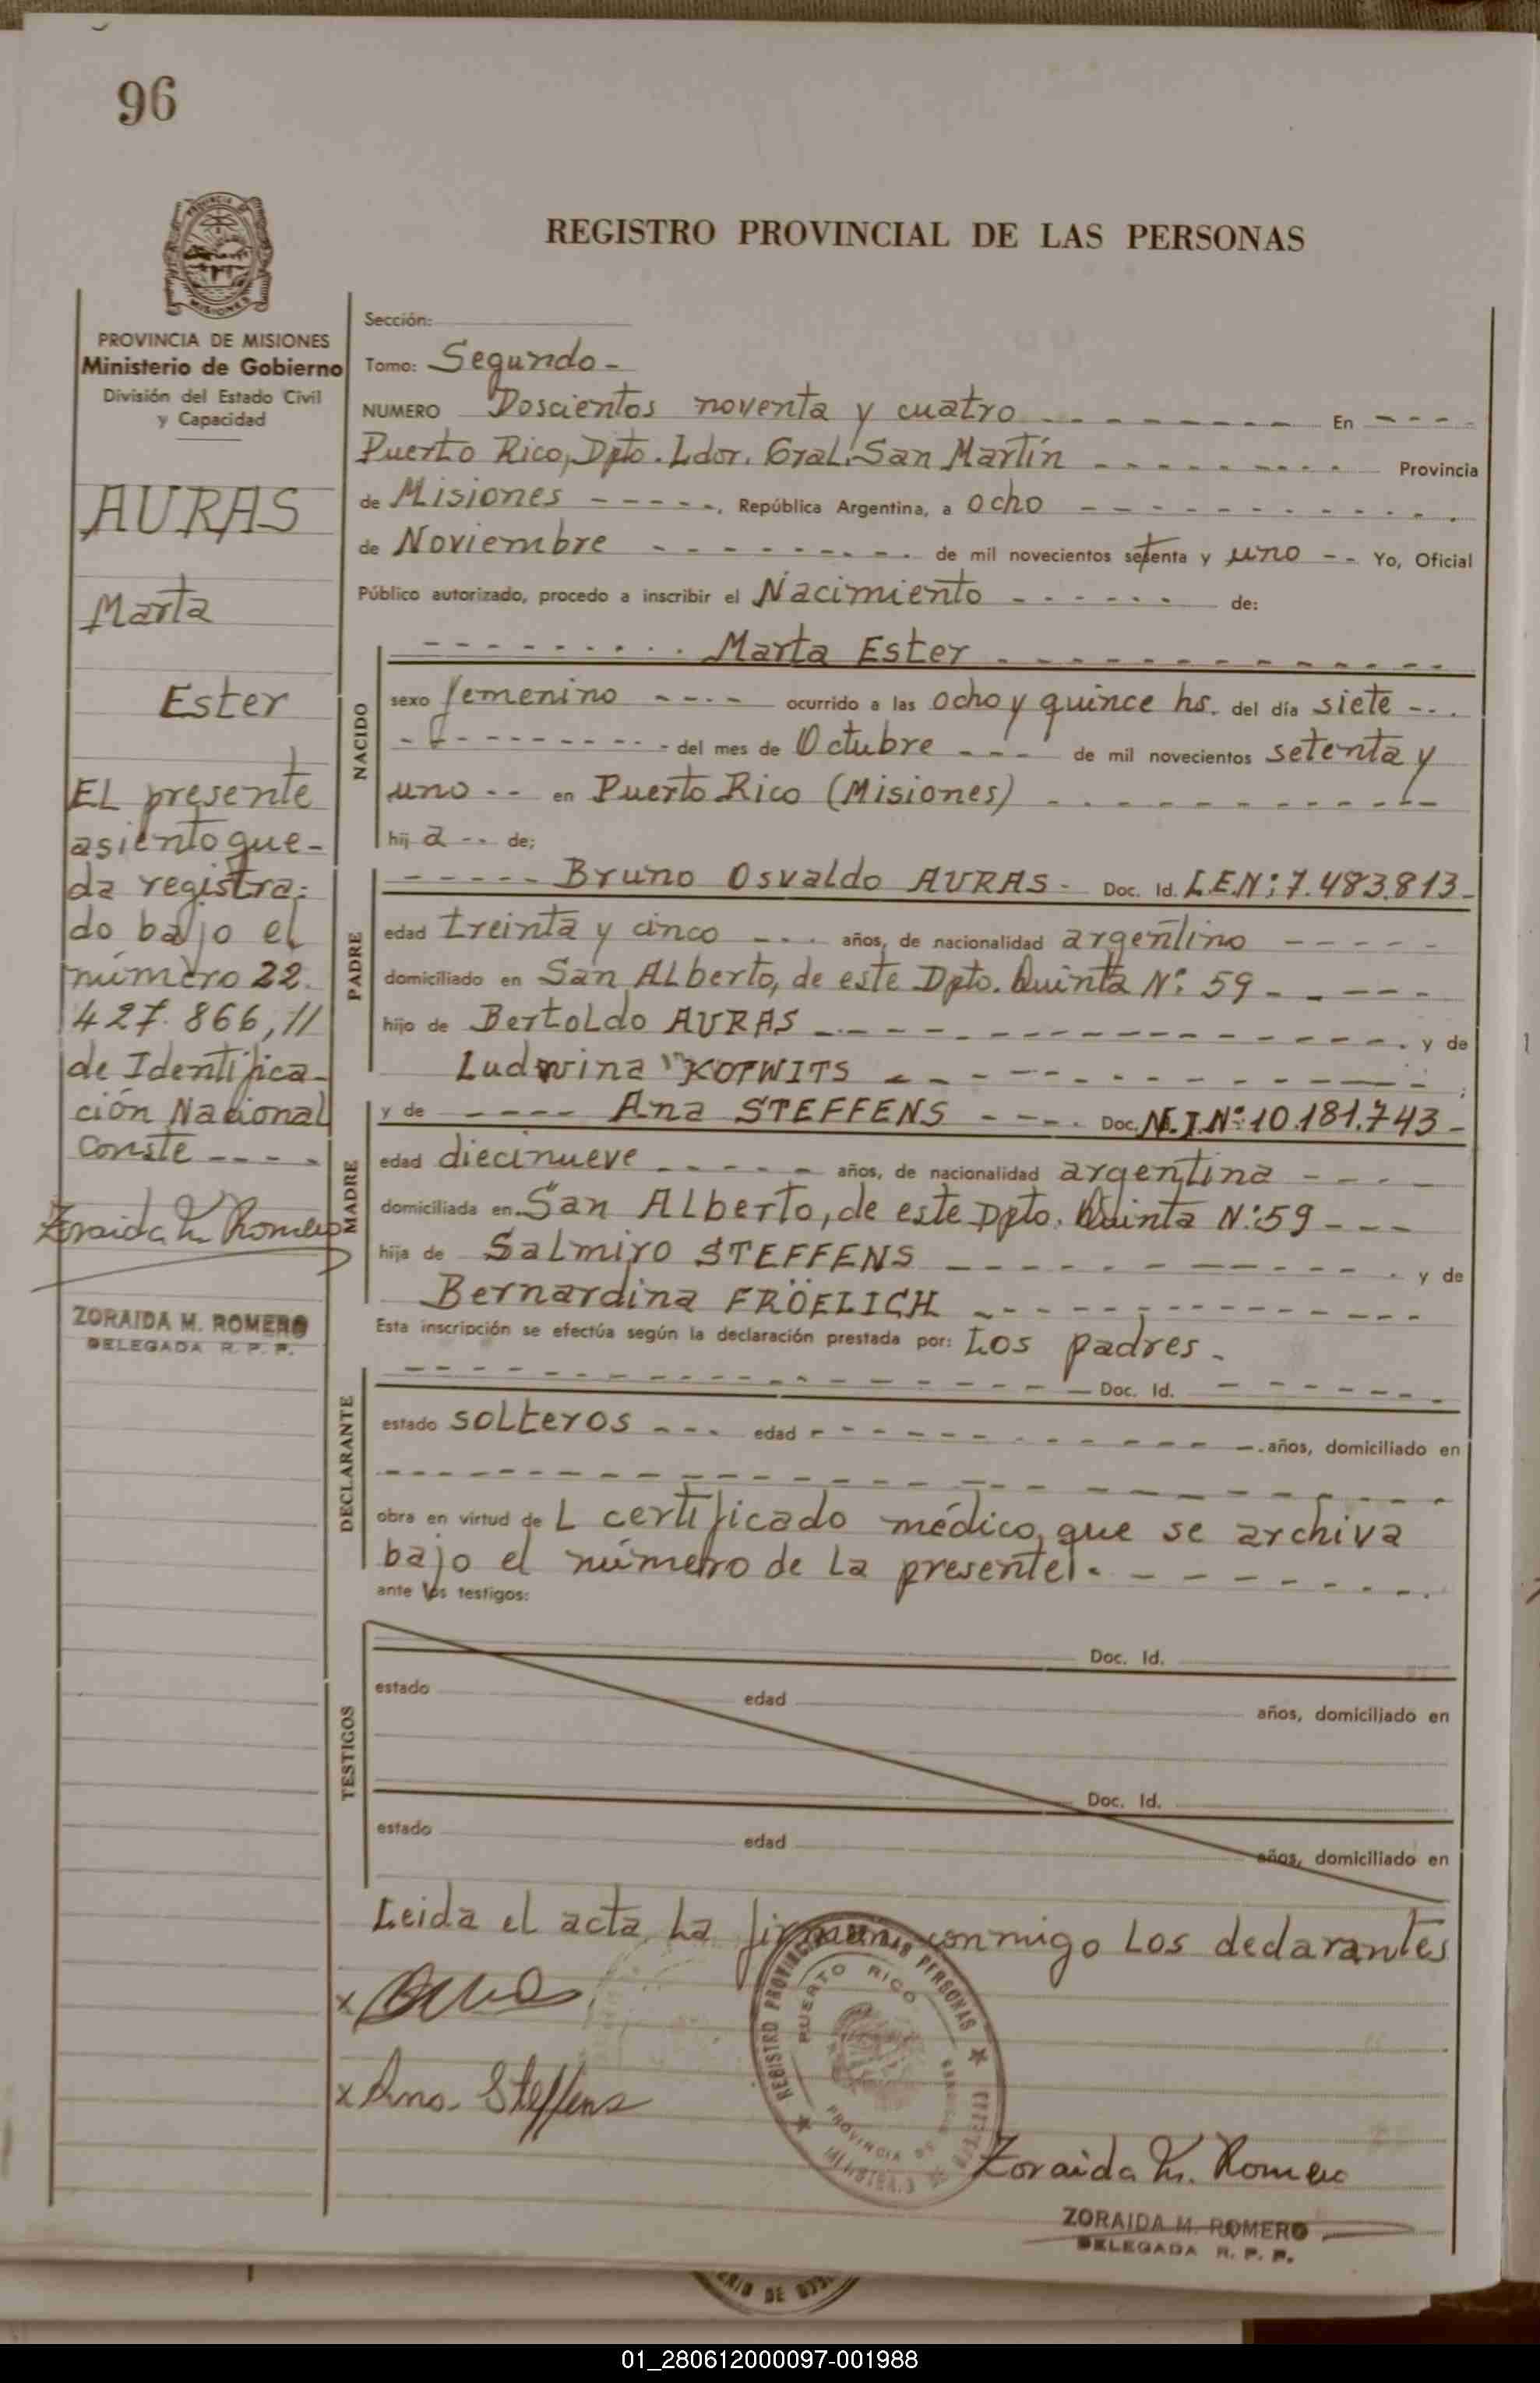 96
REGISTRO PROVINCIAL DE LAS PERSONAS
MISIONES
PROVINCIA DE MISIONES
Ministerio de Gobierno
División del Estado Civil
y Capacidad
AURAS
Marta
Ester
EL presente
asiento que-
da registra-
do bajo el
número 22.
427.866, //
de Identifica-
ción Nacional
Conste ----
Zoraida M. Romero
ZORAIDA M. ROMERO
DELEGADA R. P. P.
Sección:
Tomo: Segundo -
NUMERO Doscientos noventa y cuatro - - - - - - - - - En - - - -
Puerto Rico, Dpto. Ldor. Gral. San Martín - - - - - - - - - Provincia
de Misiones - - - - -, República Argentina, a ocho - - - - - - - - - - -
de Noviembre - - - - - - - - - de mil novecientos setenta y uno - - Yo, Oficial
Público autorizado, procedo a inscribir el Nacimiento - - - - - - de:
NACIDO
- - - - - - - - - Marta Ester - - - - - - - - - - - - -
sexo femenino - - - - ocurrido a las ocho y quince hs. del día siete - - -
- - - - - - - - - - - del mes de Octubre - - - de mil novecientos setenta y
uno - - en Puerto Rico (Misiones) - - - - - - - - - - - -
hij a - - de;
PADRE
- - - - - Bruno Osvaldo AURAS - Doc. Id. L.E.N: 7.483.813 -
edad treinta y cinco - - - años, de nacionalidad argentino - - - - -
domiciliado en San ALberto, de este Dpto. Quinta N: 59 - - - - -
hijo de BertoLdo AURAS - - - - - - - - - - - - - - - y de
Ludwina "KOTWITS - - - - - - - - - - - - - -
MADRE
y de - - - - Ana STEFFENS - - - - Doc. N.I.N: 10.181.743 -
edad diecinueve - - - - - años, de nacionalidad argentina - - - -
domiciliada en San ALberto, de este Dpto. Quinta N: 59 - - -
hija de Salmiro STEFFENS - - - - - - - - - - - y de
Bernardina FRÖELICH - - - - - - - - - - - - - -
Esta inscripción se efectúa según la declaración prestada por: Los padres -
DECLARANTE
- - - - - - - - - - - - - - - - - Doc. Id. - - - - - - -
estado soLteros - - - edad - - - - - - - - - - - - años, domiciliado en
- - - - - - - - - - - - - - - - - - - - - - - -
obra en virtud de L certificado médico, que se archiva
bajo el número de La presente. - - - - - - - - -
ante los testigos:
TESTIGOS
Doc. Id.
estado edad años, domiciliado en
Doc. Id.
estado edad años, domiciliado en
Leida el acta La firman conmigo Los declarantes
x
x Ana Steffens
REGISTRO PROVINCIAL DE LAS PERSONAS
PUERTO RICO
PROVINCIA DE
Zoraida M. Romero
ZORAIDA M. ROMERO
DELEGADA R. P. P.
01_280612000097-001988